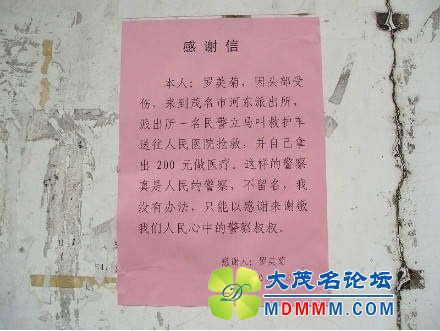 感谢信
本人：罗美菊，因头部受
伤，来到茂名市河东派出所，
派出所一名民警立马叫救护车
送往人民医院抢救，并自己拿
出 200 元做医疗。这样的警察
真是人民的警察，不留名，我
没有办法，只能以感谢来谢敬
我们人民心中的警察叔叔。
感谢人：罗美菊
大茂名论坛
MDMMM.COM